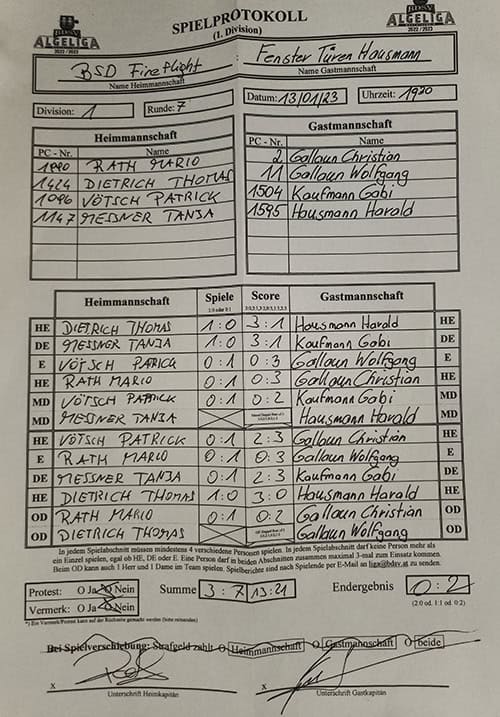 BDSV
ALGELIGA
2022 / 2023
SPIELPROTOKOLL
(1. Division)
BDSV
ALGELIGA
2022 / 2023
BSD Fireflight : Fenster Türen Hausmann
Name Heimmannschaft Name Gastmannschaft
Division: 1 Runde: 7 Datum: 13/01/23 Uhrzeit: 1920
Heimmannschaft Gastmannschaft
PC - Nr. Name PC - Nr. Name
RATH MARIO 2 Gallaun Christian
1424 DIETRICH THOMAS 11 Gallaun Wolfgang
1096 VÖTSCH PATRICK 1504 Kaufmann Gabi
1147 MESSNER TANJA 1595 Hausmann Harald
Heimmannschaft Spiele Score Gastmannschaft
HE DIETRICH THOMAS 1:0 3:1 Hausmann Harald HE
DE MESSNER TANJA 1:0 3:1 Kaufmann Gabi DE
E VÖTSCH PATRICK 0:1 0:3 Gallaun Wolfgang E
HE RATH MARIO 0:1 0:3 Gallaun Christian HE
MD VÖTSCH PATRICK 0:1 0:2 Kaufmann Gabi MD
MD MESSNER TANJA Hausmann Harald MD
HE VÖTSCH PATRICK 0:1 2:3 Gallaun Christian HE
E RATH MARIO 0:1 0:3 Gallaun Wolfgang E
DE MESSNER TANJA 0:1 2:3 Kaufmann Gabi DE
HE DIETRICH THOMAS 1:0 3:0 Hausmann Harald HE
OD RATH MARIO 0:1 0:2 Gallaun Christian OD
OD DIETRICH THOMAS Gallaun Wolfgang OD
In jedem Spielabschnitt müssen mindestens 4 verschiedene Personen spielen. In jedem Spielabschnitt darf keine Person mehr als
ein Einzel spielen, egal ob HE, DE oder E. Eine Person darf in beiden Abschnitten zusammen maximal 3-mal zum Einsatz kommen.
Beim OD kann auch 1 Herr und 1 Dame im Team spielen. Spielberichte sind nach Spielende per E-Mail an liga@bdsv.at zu senden.
Protest: O Ja O Nein Summe 3 : 7 13:21 Endergebnis 0:2
Vermerk: O Ja O Nein (2:0 od. 1:1 od. 0:2)
*) Ein Vermerk/Protest kann auf der Rückseite gemacht werden (bitte ankreuzen)
Bei Spielverschiebung: Strafgeld zahlt O Heimmannschaft O Gastmannschaft O beide
X X
Unterschrift Heimkapitän Unterschrift Gastkapitän